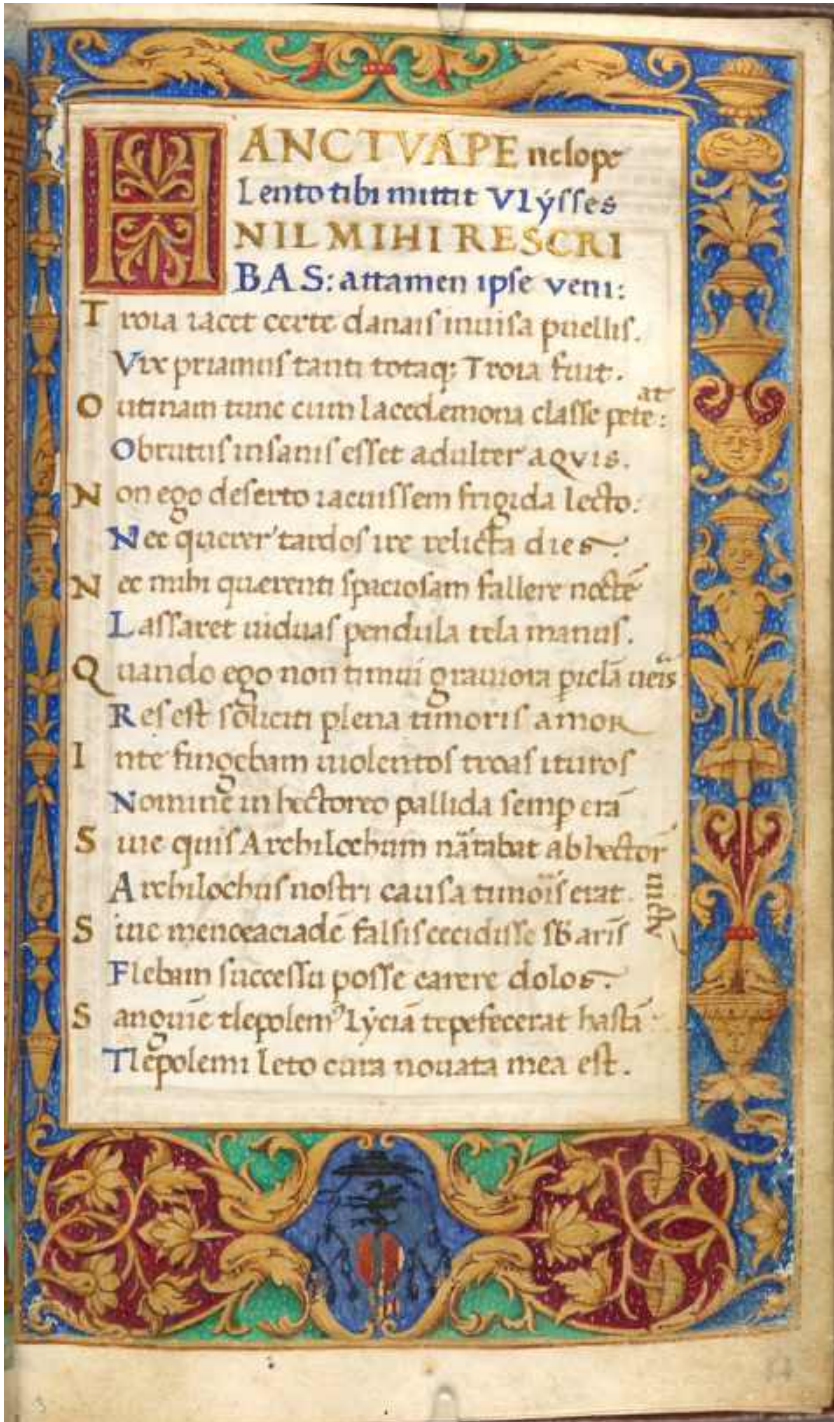 HANC TVA PEnelope
Lento tibi mittit Vlýsses
NIL MIHI RESCRI
BAS: attamen ipse veni:
Troia iacet certe danais inuisa puellis.
Vix priamus tanti totaq; Troia fuit.
O utinam tunc cum lacedemona classe peteat:
Obrutus insanis esset adulter aqvis.
Non ego deserto iacuissem frigida lecto:
Nec querer tardos ire relicta dies.
Nec mihi querenti spaciosam fallere noctē
Lassaret uiduas pendula tela manus.
Quando ego non timui grauiora picla ueis
Res est soliciti plena timoris amor
In te fingebam uiolentos troas ituros
Nomine in hectoreo pallida semp erā
Siue quis Archilochum nātabat ab hectore uictū
Archilochus nostri causa timois erat.
Siue menoeaciade falsis cecidisse sb aris
Flebam successu posse carere dolos.
Sanguine tlepolem9 lýciā tepefecerat hastā:
Tlepolemi leto cura nouata mea est.